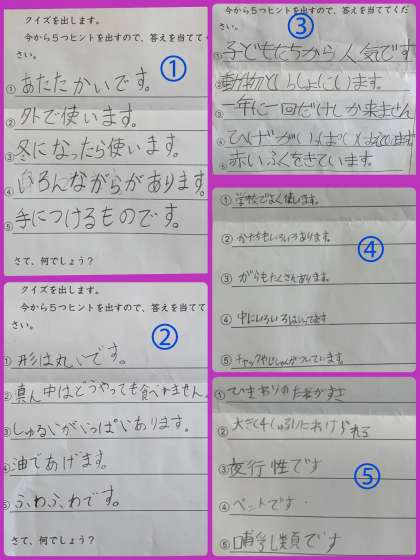 クイズを出します。
今から5つヒントを出すので、答えを当てて
さい。
①
①あたたかいです。
②外で使います。
③冬になったら使います。
④いろんながらがあります。
⑤手につけるものです。
さて、何でしょう？
クイズを出します。
今から5つヒントを出すので、答えを当てて
さい。
②
①形は丸いです。
②真ん中はどうやっても食べれません。
③しゅるいがいっぱいあります。
④油であげます。
⑤ふわふわです。
さて、何でしょう？
今から5つヒントを出すので、答えを当ててくだ
さい。
③
①子どもたちから人気です
②動物といっしょにいます。
③一年に一回だけしか来ません
④ひげがいっぱい
⑤赤いふくをきています。
④
①学校でよく使います。
②かたちもいろいろあります。
③がらもたくさんあります。
④中にいろいろはいってます
⑤チャックやじしゃくがついています。
⑤
①ひまわりのたねがすき
②大きく4しゅるいにわけられる
③夜行性です
④ペットです
⑤哺乳類です